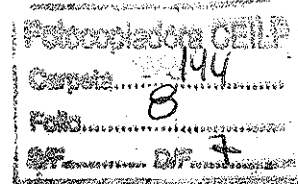 Fotocopiadora CEILP
Carpeta.........144
Folio.........8
S/F......... D/F...7